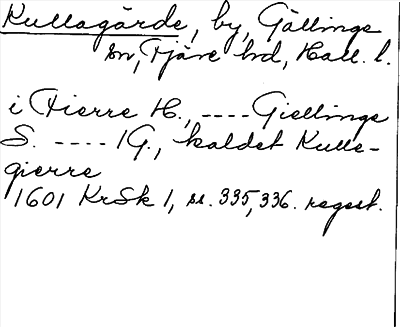 Kullagärde, by, Gällinge
sn, Fjäre hd, Hall. l.
i Fierre H., ---- Giellinge
S. ---- 1 G., kaldet Kulle-
gierre
1601 KrSk 1, ss. 335, 336. regest.